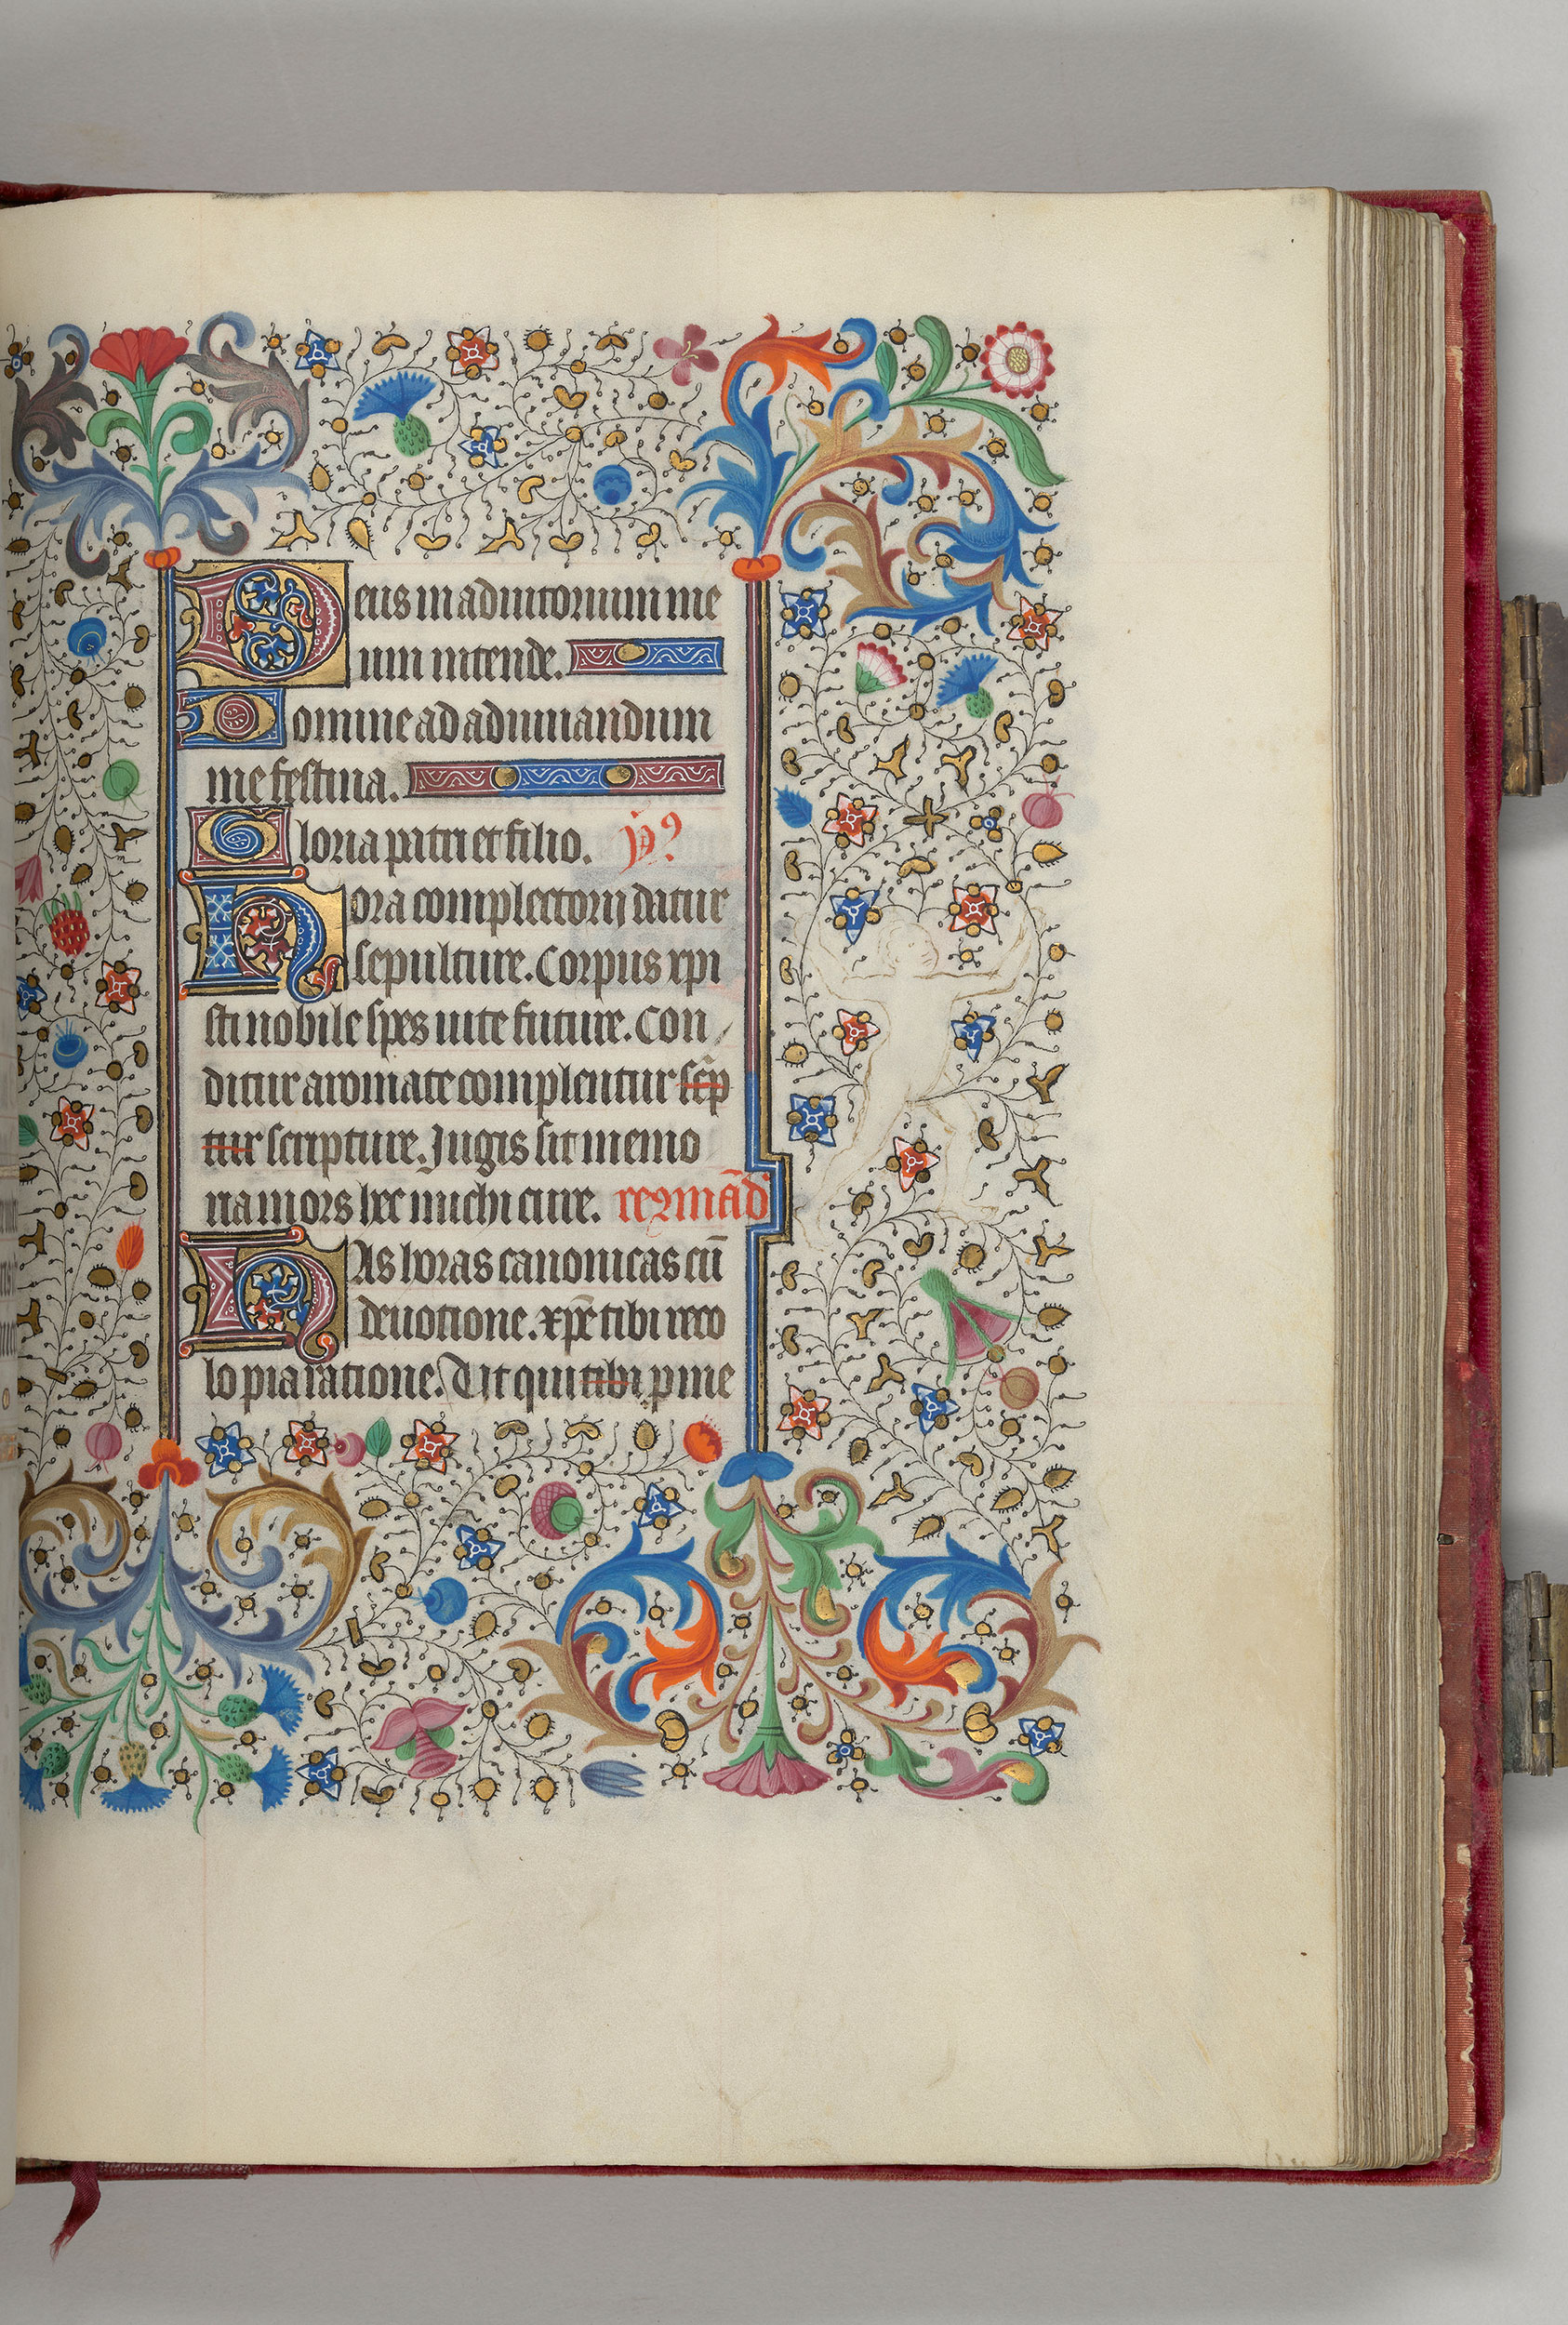 Deus in adiutorium me
um intende.
Domine ad adiuuandum
me festina.
Gloria patri et filio. yp̄9
Hora complectorij datur
sepulture. Corpus xpi
sti nobile spes uite future. Con
ditur aromate complentur scrip
tur scripture. Jugis sit memo
ria mors hec michi cure. reꝯmād
Has horas canonicas cū
deuotione. xp̄e tibi reco
lo pia ratione. Ut qui tibi pro me